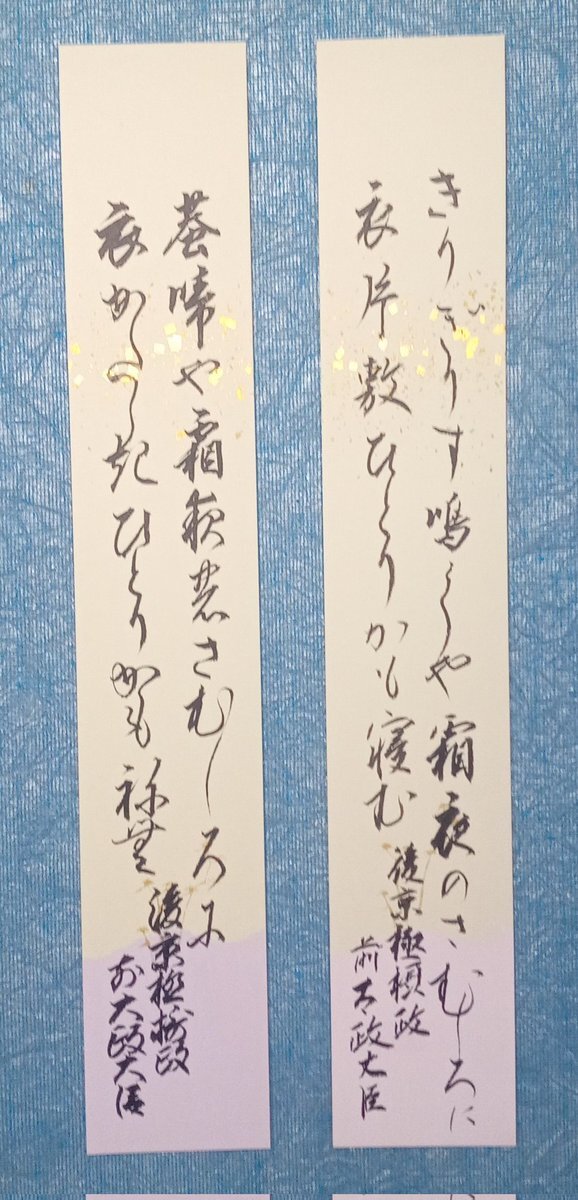 きりぎりす鳴くや霜夜のさむしろに
衣片敷ひとりかも寝む
後京極摂政
前太政大臣
蛬啼や霜夜農さむしろ尓
衣可多し起ひとり可も祢無
後京極摂政
前大政大臣